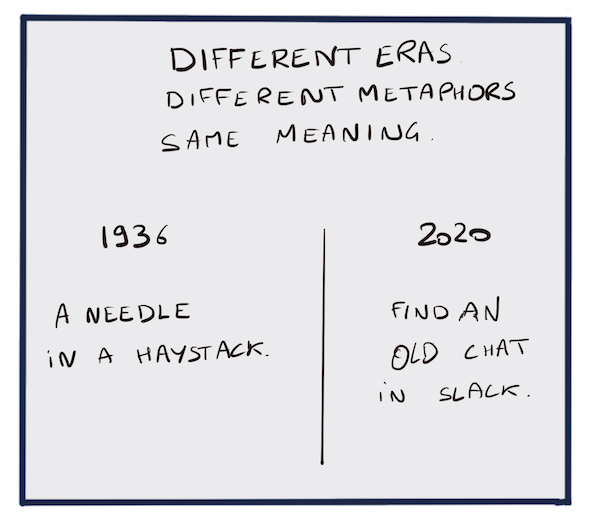 DIFFERENT ERAS
DIFFERENT METAPHORS
SAME MEANING.
1936
A NEEDLE
IN A HAYSTACK.
2020
FIND AN
OLD CHAT
IN SLACK.